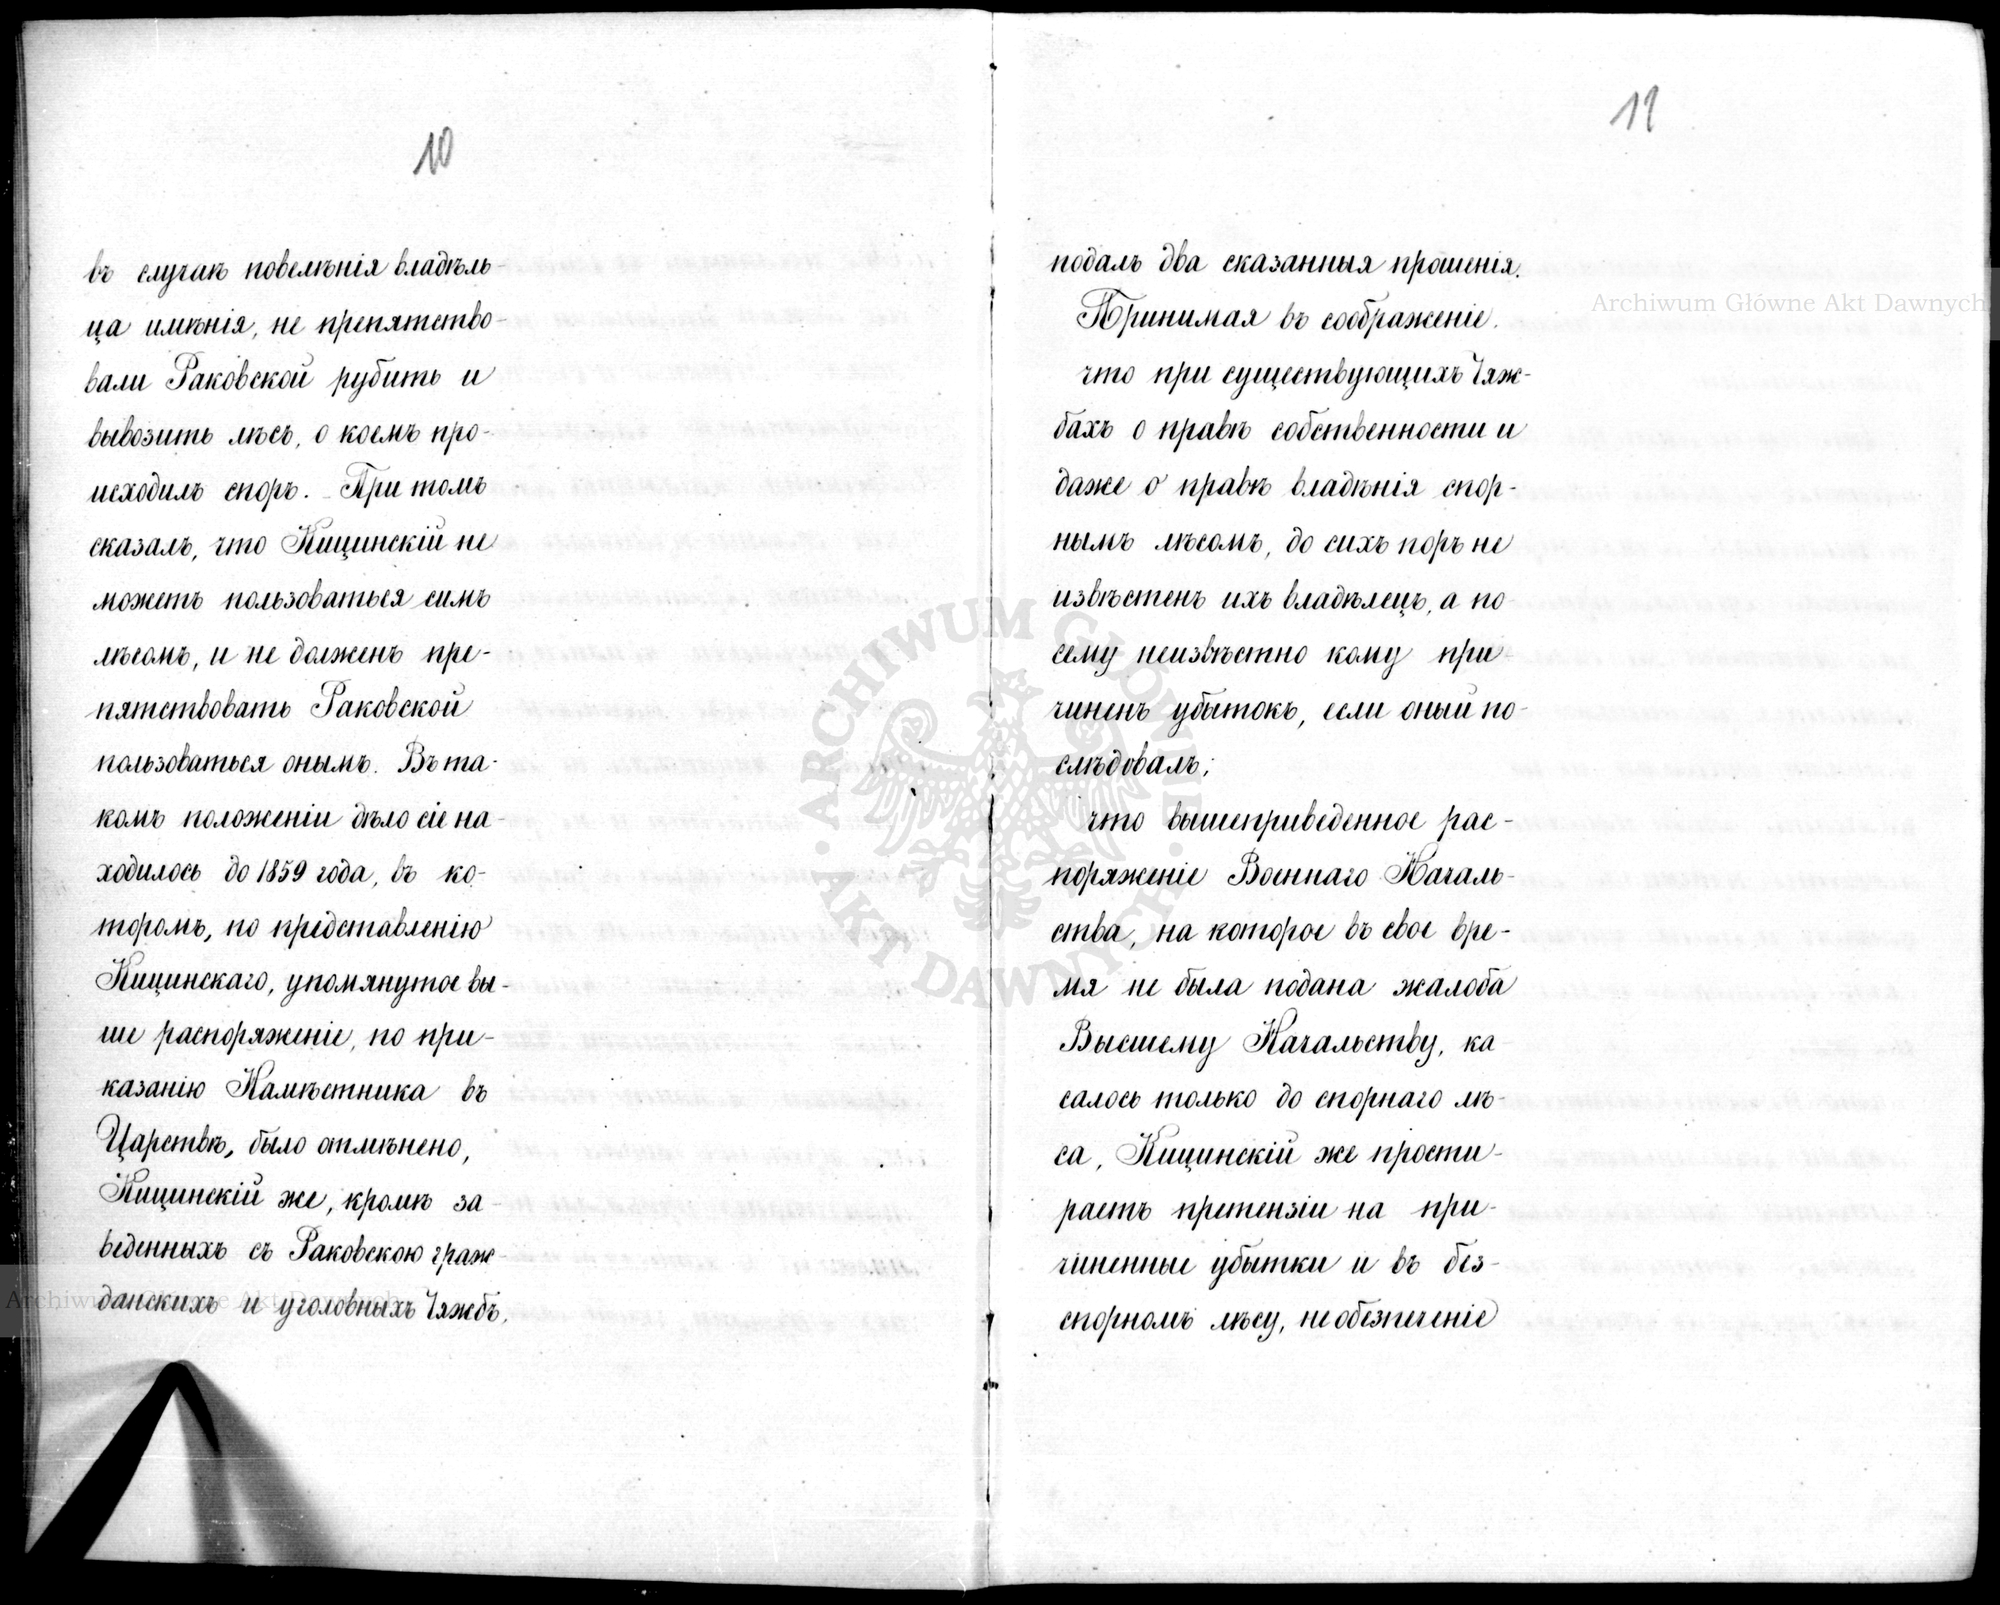 10
въ случаѣ повелѣнія владѣль
ца имѣнія, не препятство-
вали Раковской рубить и
вывозить лѣсъ, о коемъ про-
исходилъ споръ. При томъ
сказалъ, что Кицинскій не
можетъ пользоваться симъ
лѣсомъ, и не долженъ пре-
пятствовать Раковской
пользоваться онымъ. Въ та-
комъ положеніи дѣло сіе на-
ходилось до 1859 года, въ ко-
торомъ, по представленію
Кицинскаго, упомянутое вы-
ше распоряженіе, по при-
казанію Намѣстника въ
Царствѣ, было отмѣнено,
Кицинскій же, кромѣ за-
веденныхъ съ Раковскою граж
данскихъ и уголовныхъ тяжбъ,
11
подалъ два сказанныя прошенія.
Принимая въ соображеніе.
что при существующихъ тяж-
бахъ о правѣ собственности и
даже о правѣ владѣнія спор-
нымъ лѣсомъ, до сихъ поръ не
извѣстенъ ихъ владѣлецъ, а по
сему неизвѣстно кому при
чиненъ убытокъ, если оный по-
слѣдовалъ;
что вышеприведенное рас-
поряженіе Военнаго Началь-
ства, на которое въ свое вре-
мя не была подана жалоба
Высшему Начальству, ка
салось только до спорнаго лѣ-
са, Кицинскій же прости-
раетъ претензіи на при-
чиненные убытки и въ без-
спорномъ лѣсу, необезпеченіе
Archiwum Główne Akt Dawnych
ARCHIWUM GŁÓWNE AKT DAWNYCH
Archiwum Główne Akt Dawnych